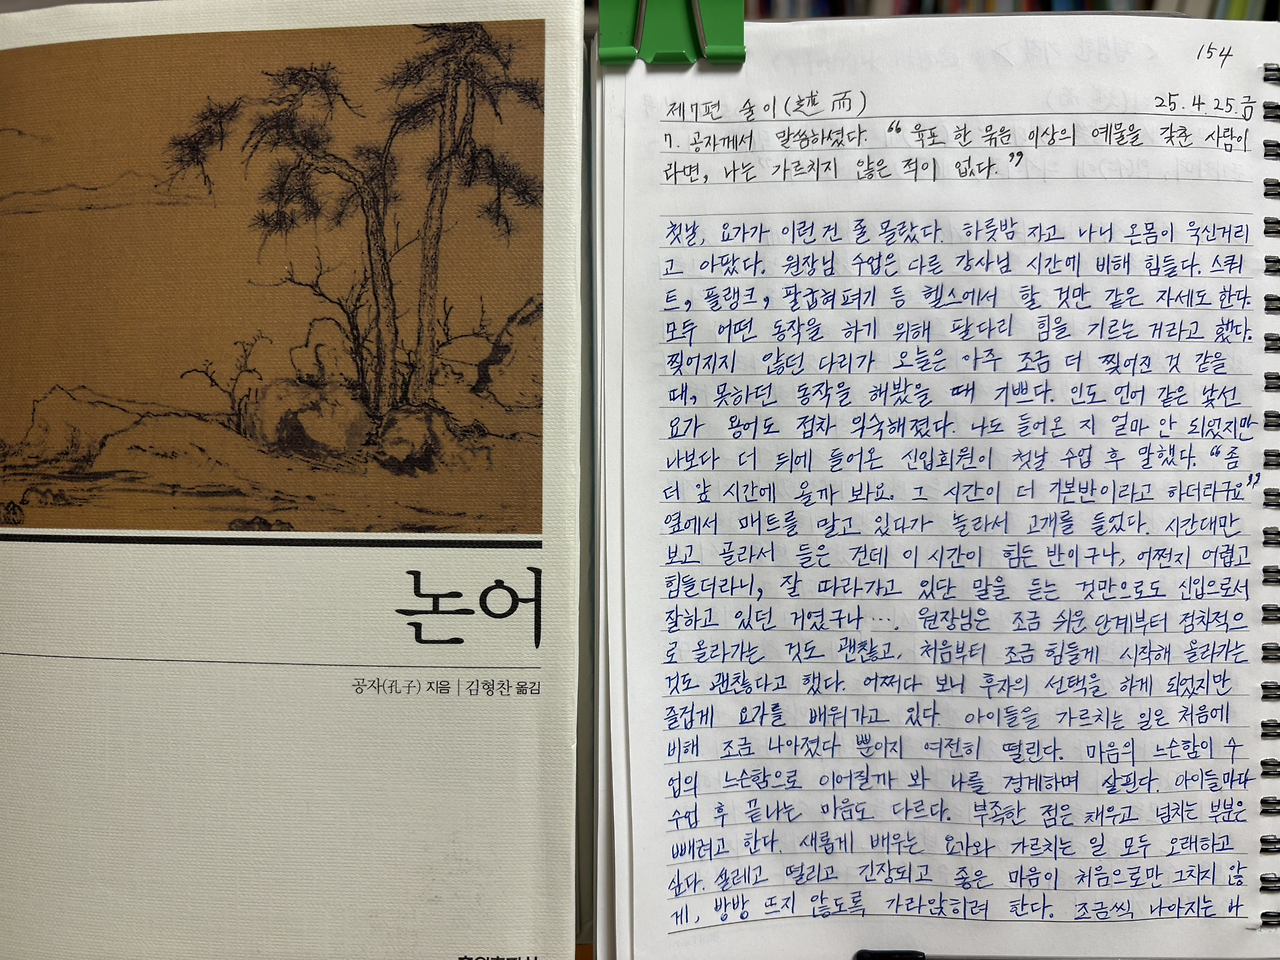 논어
공자(孔子) 지음 | 김형찬 옮김
154
제7편 술이(述而) 25.4.25.금
7. 공자께서 말씀하셨다. “육포 한 묶음 이상의 예물을 갖춘 사람이
라면, 나는 가르치지 않은 적이 없다.”
첫날, 요가가 이런 건 줄 몰랐다. 하룻밤 자고 나니 온몸이 욱신거리
고 아팠다. 원장님 수업은 다른 강사님 시간에 비해 힘들다. 스쿼
트, 플랭크, 팔굽혀펴기 등 헬스에서 할 것만 같은 자세도 한다.
모두 어떤 동작을 하기 위해 팔다리 힘을 기르는 거라고 했다.
찢어지지 않던 다리가 오늘은 아주 조금 더 찢어진 것 같을
때, 못하던 동작을 해봤을 때 기쁘다. 인도 언어 같은 낯선
요가 용어도 점차 익숙해졌다. 나도 들어온 지 얼마 안 되었지만
나보다 더 뒤에 들어온 신입회원이 첫날 수업 후 말했다. “좀
더 앞 시간에 올까 봐요. 그 시간이 더 기본반이라고 하더라구요”
옆에서 매트를 말고 있다가 놀라서 고개를 들었다. 시간대만
보고 골라서 들은 건데 이 시간이 힘든 반이구나, 어쩐지 어렵고
힘들더라니, 잘 따라가고 있단 말을 듣는 것만으로도 신입으로서
잘하고 있던 거였구나…. 원장님은 조금 쉬운 단계부터 점차적으
로 올라가는 것도 괜찮고, 처음부터 조금 힘들게 시작해 올라가는
것도 괜찮다고 했다. 어쩌다 보니 후자의 선택을 하게 되었지만
즐겁게 요가를 배워가고 있다. 아이들을 가르치는 일은 처음에
비해 조금 나아졌다 뿐이지 여전히 떨린다. 마음의 느슨함이 수
업의 느슨함으로 이어질까 봐 나를 경계하며 살핀다. 아이들마다
수업 후 끝나는 마음도 다르다. 부족한 점은 채우고 넘치는 부분은
빼려고 한다. 새롭게 배우는 요가와 가르치는 일 모두 오래하고
싶다. 설레고 떨리고 긴장되고 좋은 마음이 처음으로만 그치지 않
게, 방방 뜨지 않도록 가라앉히려 한다. 조금씩 나아지는 바